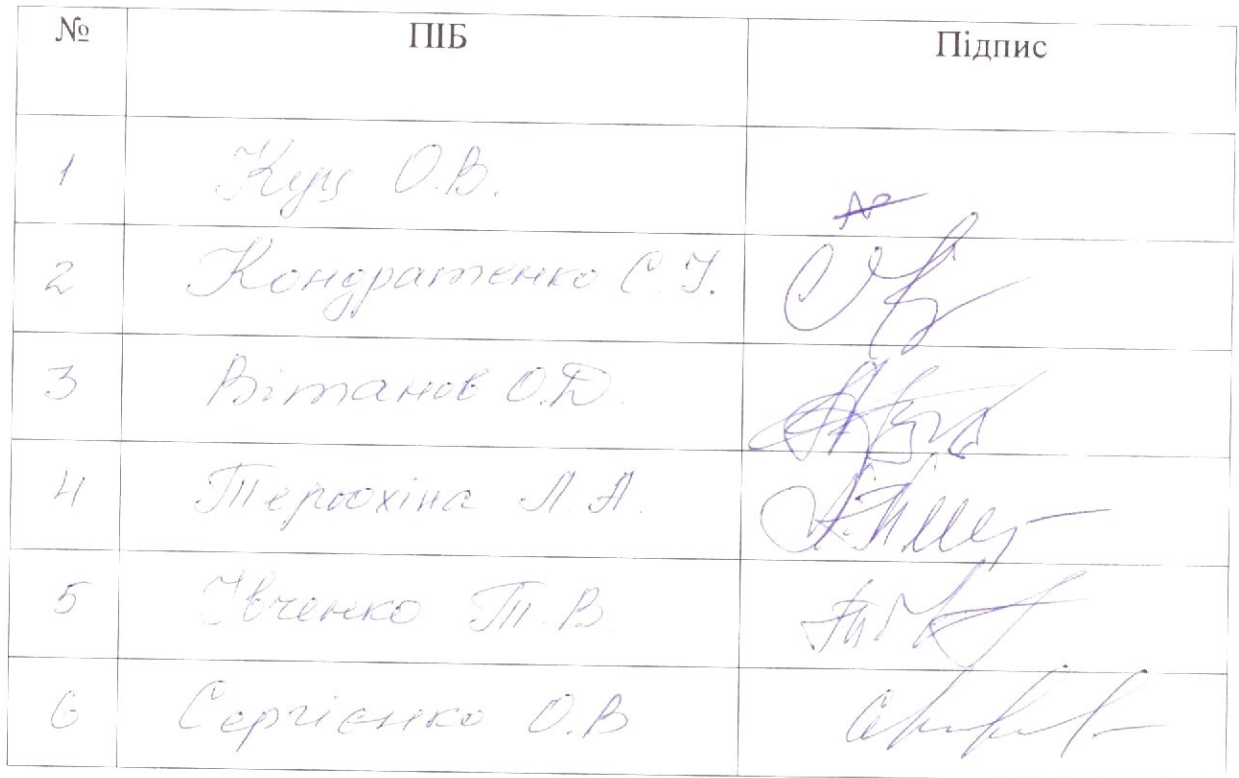 № ПІБ Підпис
1 Куц О.В.
2 Кондратенко С.І.
3 Вітанов О.Д.
4 Терьохіна Л.А.
5 Івченко Т.В.
6 Сергієнко О.В